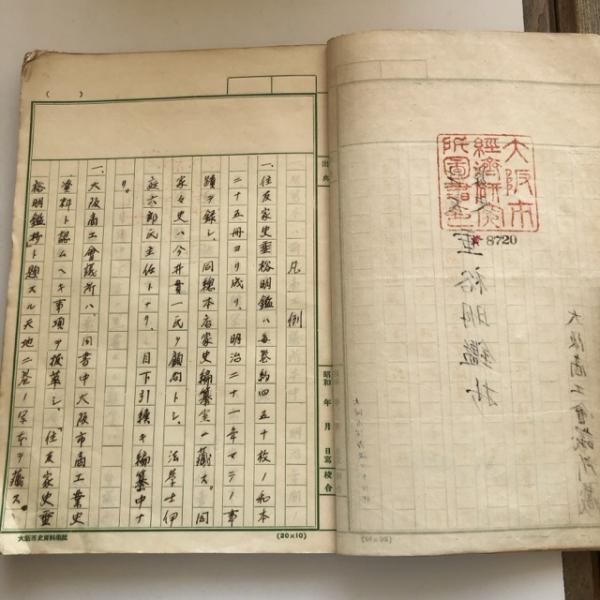 大阪市
經濟研究
所圖書
8720
垂裕明鑑抄
大阪商工會議所藏
出典
昭和 年 月 日寫 校合
凡例
一、住友家史垂裕明鑑ハ毎巻約四五十枚ノ和本
二十五冊ヨリ成リ、明治二十一年マテノ事
蹟ヲ録シ、同總本店家史編纂室ニ藏ス。同
家々史ハ今井貫一氏ヲ顧問トシ、法學士伊
庭六郎氏主任トナリ、目下引續キ編纂中ナ
リ。
一、大阪商工會議所ハ、同書中大阪市商工業史
資料ト認ムヘキ事項ヲ抜萃シ、「住友家史垂
裕明鑑抄」ト題スル天地二巻ノ写本ヲ藏ス。
大阪市史資料
(20×10)